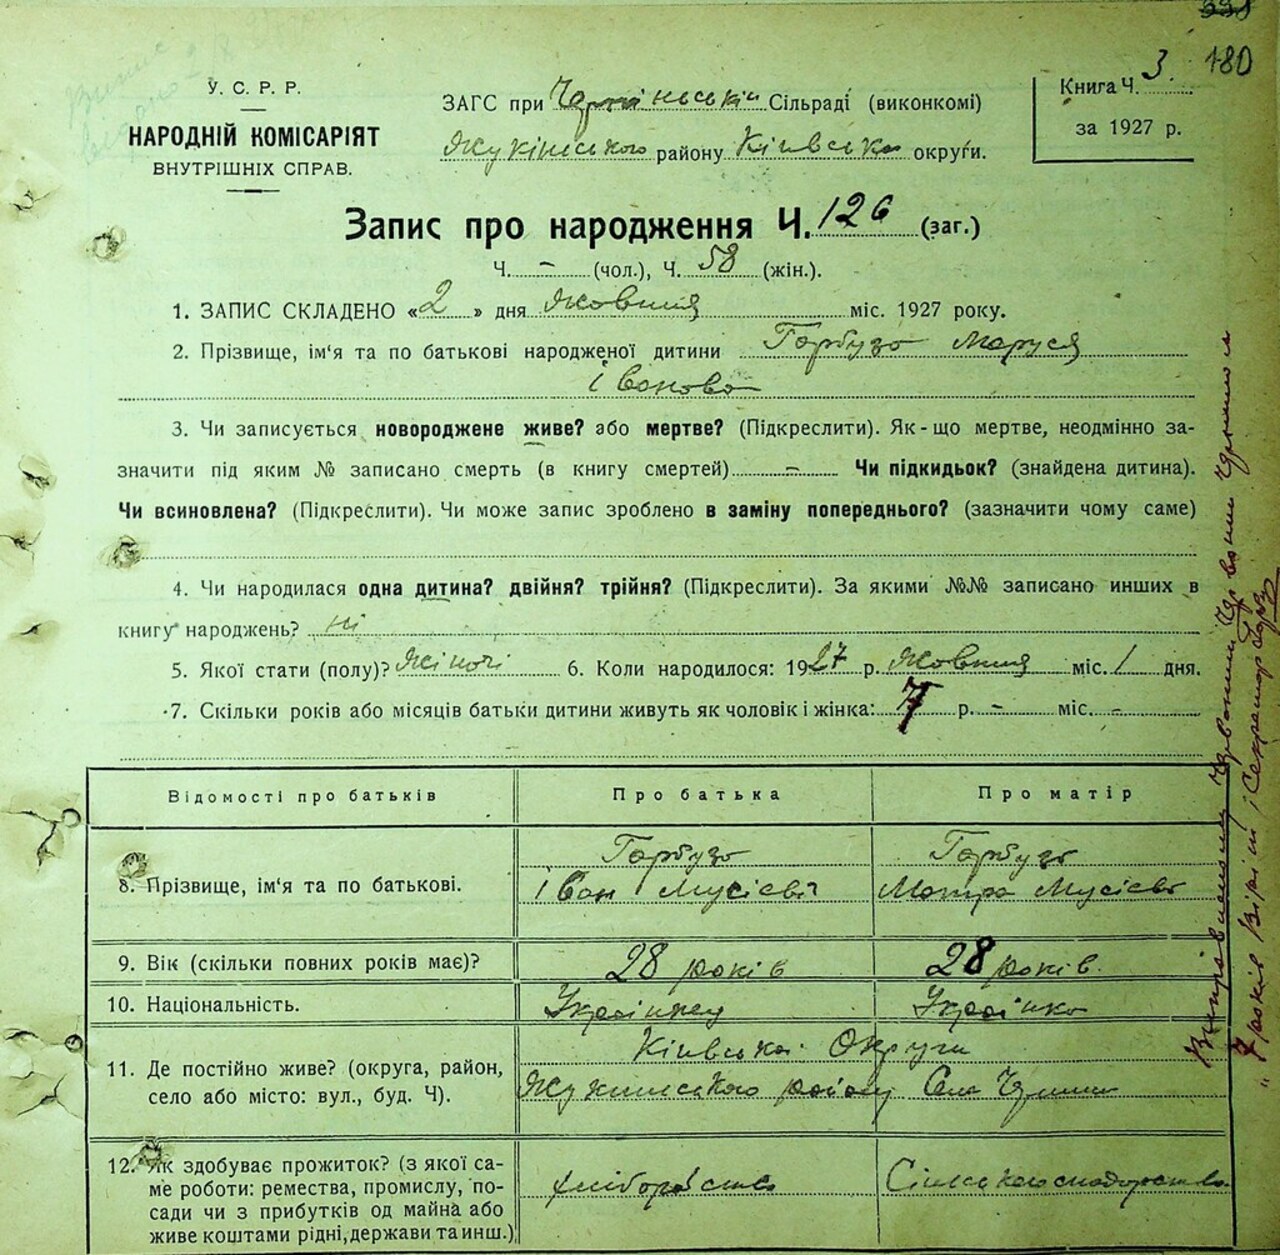 180
У. С. Р. Р.
НАРОДНІЙ КОМІСАРІЯТ
ВНУТРІШНІХ СПРАВ.
ЗАГС при Сільраді (виконкомі)
району Київська округи.
Книга Ч. 3
за 1927 р.
Запис про народження Ч. 126 (заг.)
Ч. – (чол.), Ч. 58 (жін.).
1. ЗАПИС СКЛАДЕНО «2» дня Жовтня міс. 1927 року.
2. Прізвище, ім'я та по батькові народженої дитини Гарбуза Маруся
Іванова
3. Чи записується новороджене живе? або мертве? (Підкреслити). Як-що мертве, неодмінно за-
значити під яким № записано смерть (в книгу смертей) – Чи підкидьок? (знайдена дитина).
Чи всиновлена? (Підкреслити). Чи може запис зроблено в заміну попереднього? (зазначити чому саме)
4. Чи народилася одна дитина? двійня? трійня? (Підкреслити). За якими №№ записано инших в
книгу народжень? ні
5. Якої стати (полу)? Жіночі 6. Коли народилося: 1927 р. Жовтня міс. 1 дня.
7. Скільки років або місяців батьки дитини живуть як чоловік і жінка: 7 р. – міс. –
Відомості про батьків
Про батька
Про матір
8. Прізвище, ім'я та по батькові.
Гарбуза
Іван Мусієві
Гарбуза
Мотра Мусієва
9. Вік (скільки повних років має)?
28 років
28 років.
10. Національність.
Українец
Українка
11. Де постійно живе? (округа, район,
село або місто: вул., буд. Ч).
Київська Округи
району Села
12. Як здобуває прожиток? (з якої са-
ме роботи: ремества, промислу, по-
сади чи з прибутків од майна або
живе коштами рідні, держави та инш.)
хліборобство
Сільське господарство
"7 років Вірні і Секретар